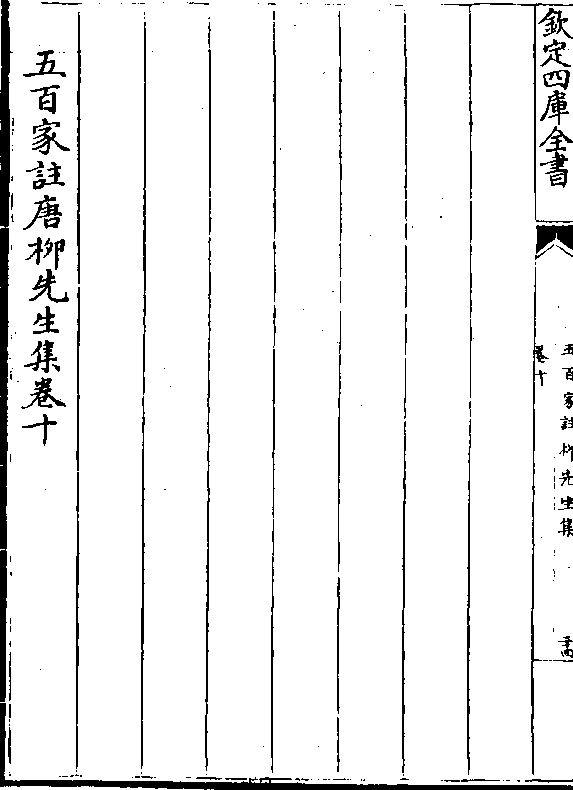 欽定四庫全書
五百家註柳先生集
卷十
五百家註唐柳先生集卷十